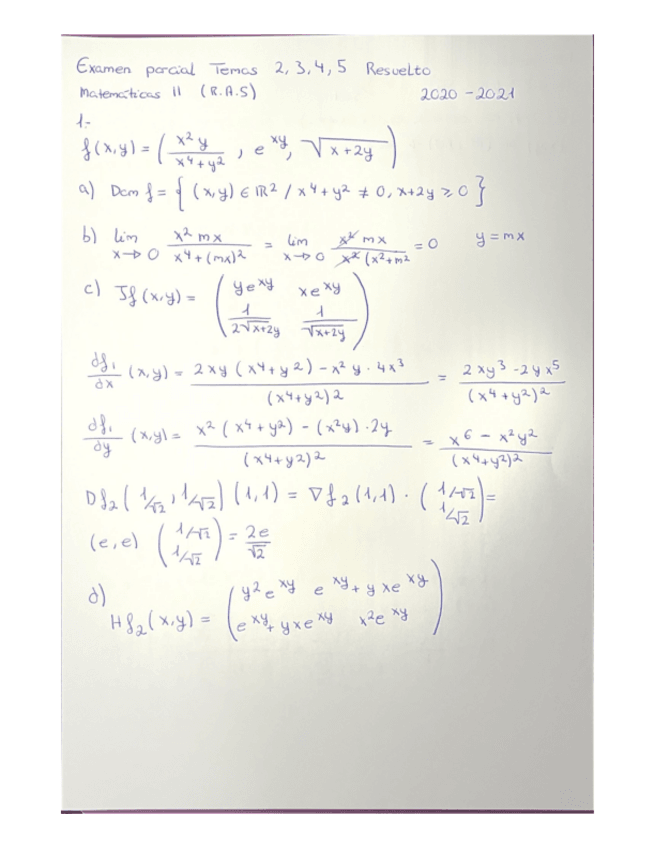 Examen parcial Temas 2, 3, 4, 5 Resuelto
Matemáticas II (R.A.S) 2020-2021
1.-
f(x,y) = ( x²y / x⁴+y² , e^xy, √x+2y )
a) Dom f = { (x,y) ∈ ℝ² / x⁴+y² ≠ 0, x+2y ≥ 0 }
b) lim x→0 x² mx / x⁴+(mx)² = lim x→0 x² mx / x² (x²+m² = 0 y = mx
c) Jf(x,y) = ( ye^xy xe^xy
1 / 2√x+2y 1 / √x+2y )
df₁/dx (x,y) = 2xy (x⁴+y²) - x² y · 4x³ / (x⁴+y²)2 = 2xy³ - 2yx⁵ / (x⁴+y²)²
df₁/dy (x,y) = x² (x⁴+y²) - (x²y) · 2y / (x⁴+y²)2 = x⁶ - x²y² / (x⁴+y²)²
Df₂ (1/√2, 1/√2) (1,1) = ∇f₂(1,1) · ( 1/√2
1/√2 ) =
(e,e) ( 1/√2
1/√2 ) = 2e/√2
d)
Hf₂(x,y) = ( y²e^xy e^xy + yxe^xy
e^xy + yxe^xy x²e^xy )